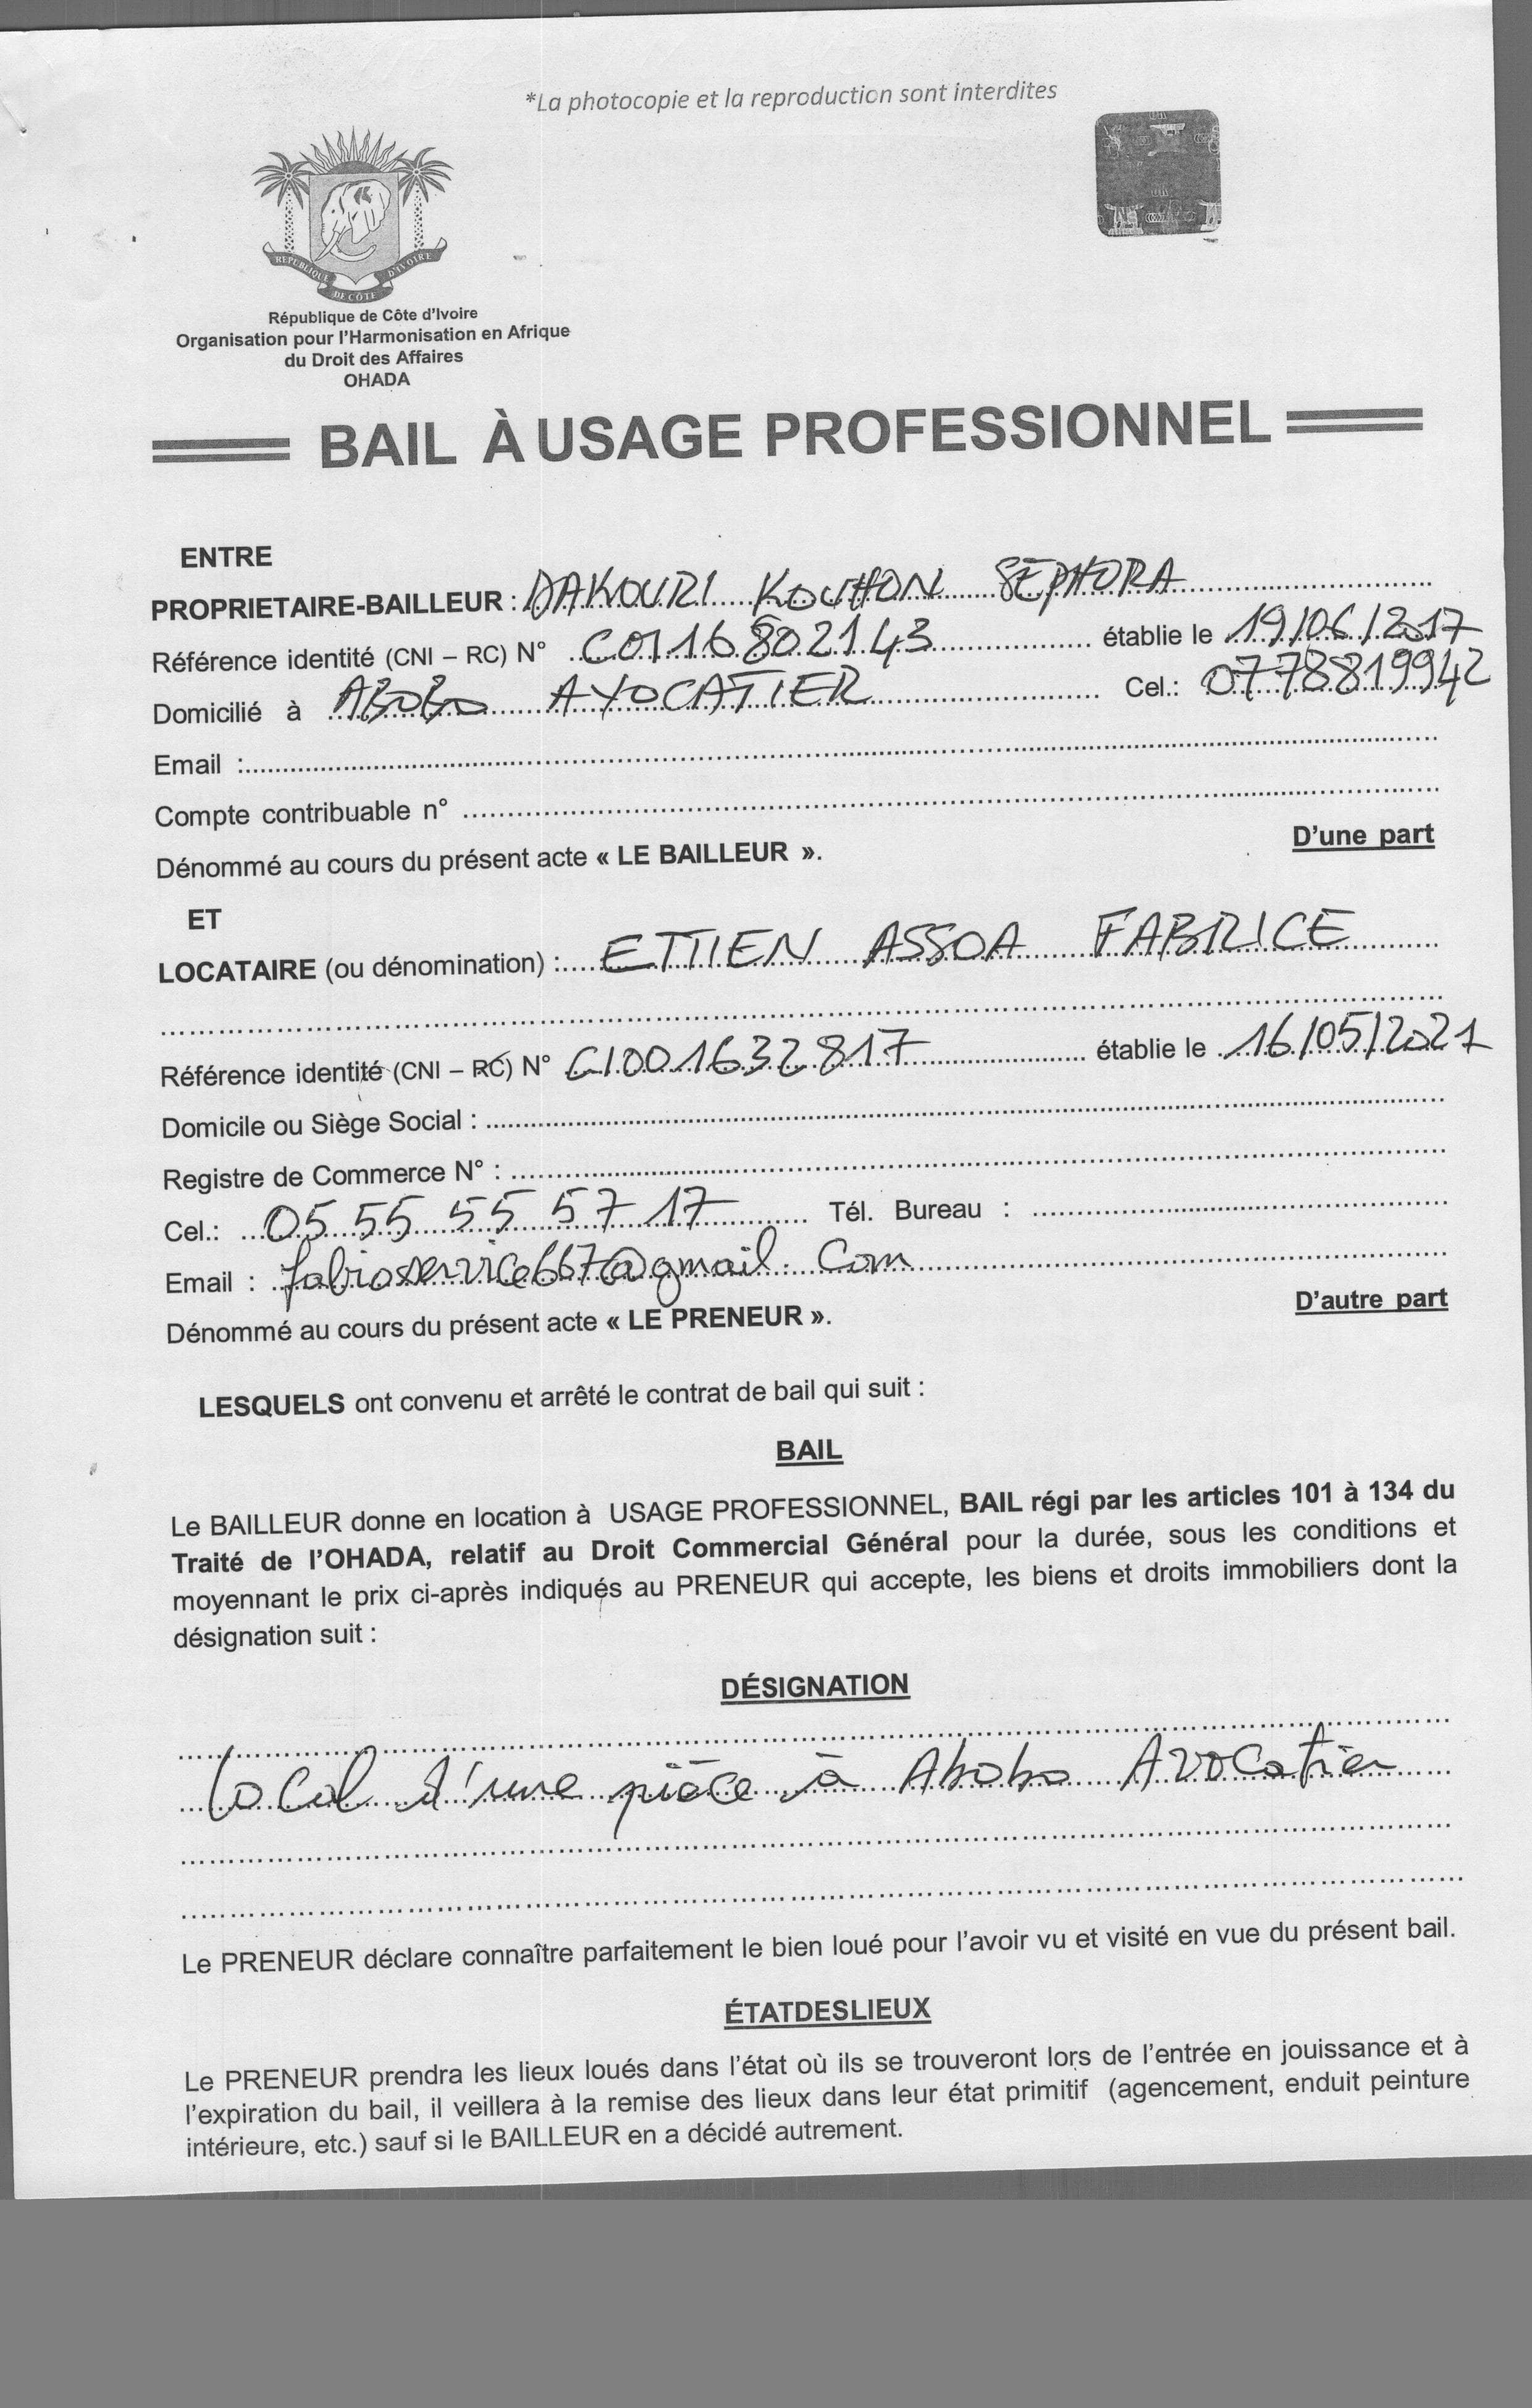 *La photocopie et la reproduction sont interdites
REPUBLIQUE DE CÔTE D'IVOIRE
République de Côte d'Ivoire
Organisation pour l'Harmonisation en Afrique
du Droit des Affaires
OHADA
BAIL À USAGE PROFESSIONNEL
ENTRE
PROPRIETAIRE-BAILLEUR : DAKOURI KOUHON SEPHORA
Référence identité (CNI – RC) N° C0116802143 établie le 19/06/2017
Domicilié à ABOBO AVOCATIER Cel.: 0778819942
Email :
Compte contribuable n°
D'une part
Dénommé au cours du présent acte « LE BAILLEUR ».
ET
LOCATAIRE (ou dénomination) : ETTIEN ASSOA FABRICE
Référence identité (CNI – RC) N° CI001632817 établie le 16/05/2021
Domicile ou Siège Social :
Registre de Commerce N° :
Cel.: 05 55 55 57 17 Tél. Bureau :
Email : fabioservice667@gmail.com
D'autre part
Dénommé au cours du présent acte « LE PRENEUR ».
LESQUELS ont convenu et arrêté le contrat de bail qui suit :
BAIL
Le BAILLEUR donne en location à USAGE PROFESSIONNEL, BAIL régi par les articles 101 à 134 du
Traité de l'OHADA, relatif au Droit Commercial Général pour la durée, sous les conditions et
moyennant le prix ci-après indiqués au PRENEUR qui accepte, les biens et droits immobiliers dont la
désignation suit :
DÉSIGNATION
local d'une pièce à Abobo Avocatier
Le PRENEUR déclare connaître parfaitement le bien loué pour l'avoir vu et visité en vue du présent bail.
ÉTATDESLIEUX
Le PRENEUR prendra les lieux loués dans l'état où ils se trouveront lors de l'entrée en jouissance et à
l'expiration du bail, il veillera à la remise des lieux dans leur état primitif (agencement, enduit peinture
intérieure, etc.) sauf si le BAILLEUR en a décidé autrement.